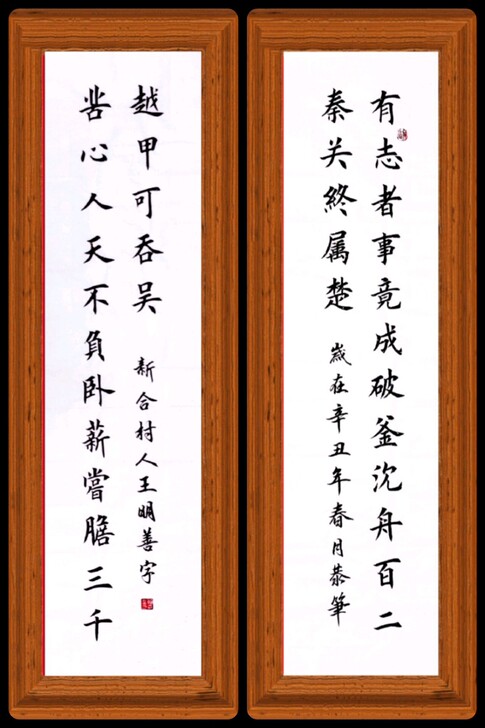 有志者事竟成破釜沈舟百二
秦关終属楚
歲在辛丑年春月恭筆
苦心人天不負卧薪嘗膽三千
越甲可吞吴
新合村人王明善字